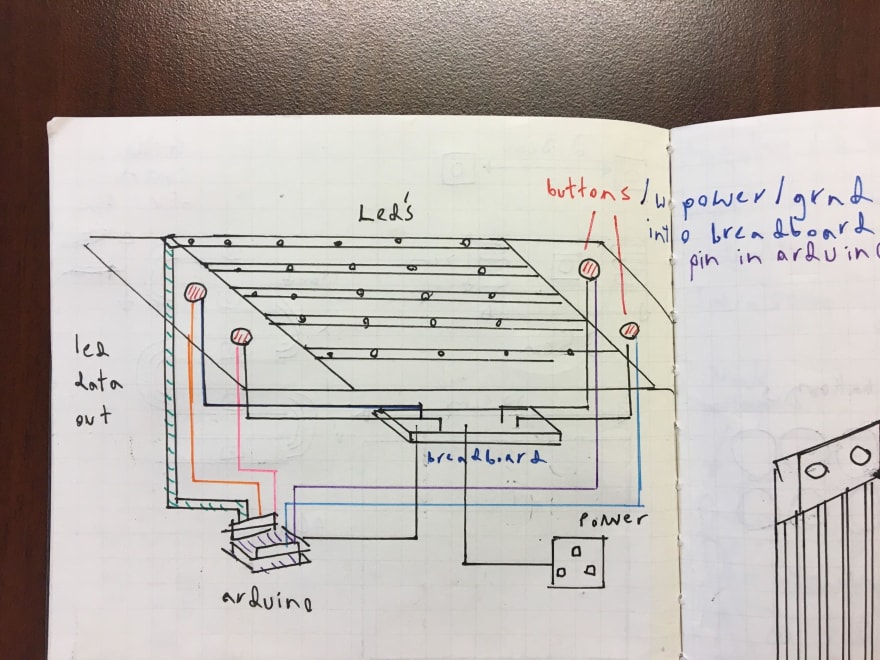 Led's
buttons /w power/grnd
into breadboard
pin in arduino
led
data
out
breadboard
power
arduino